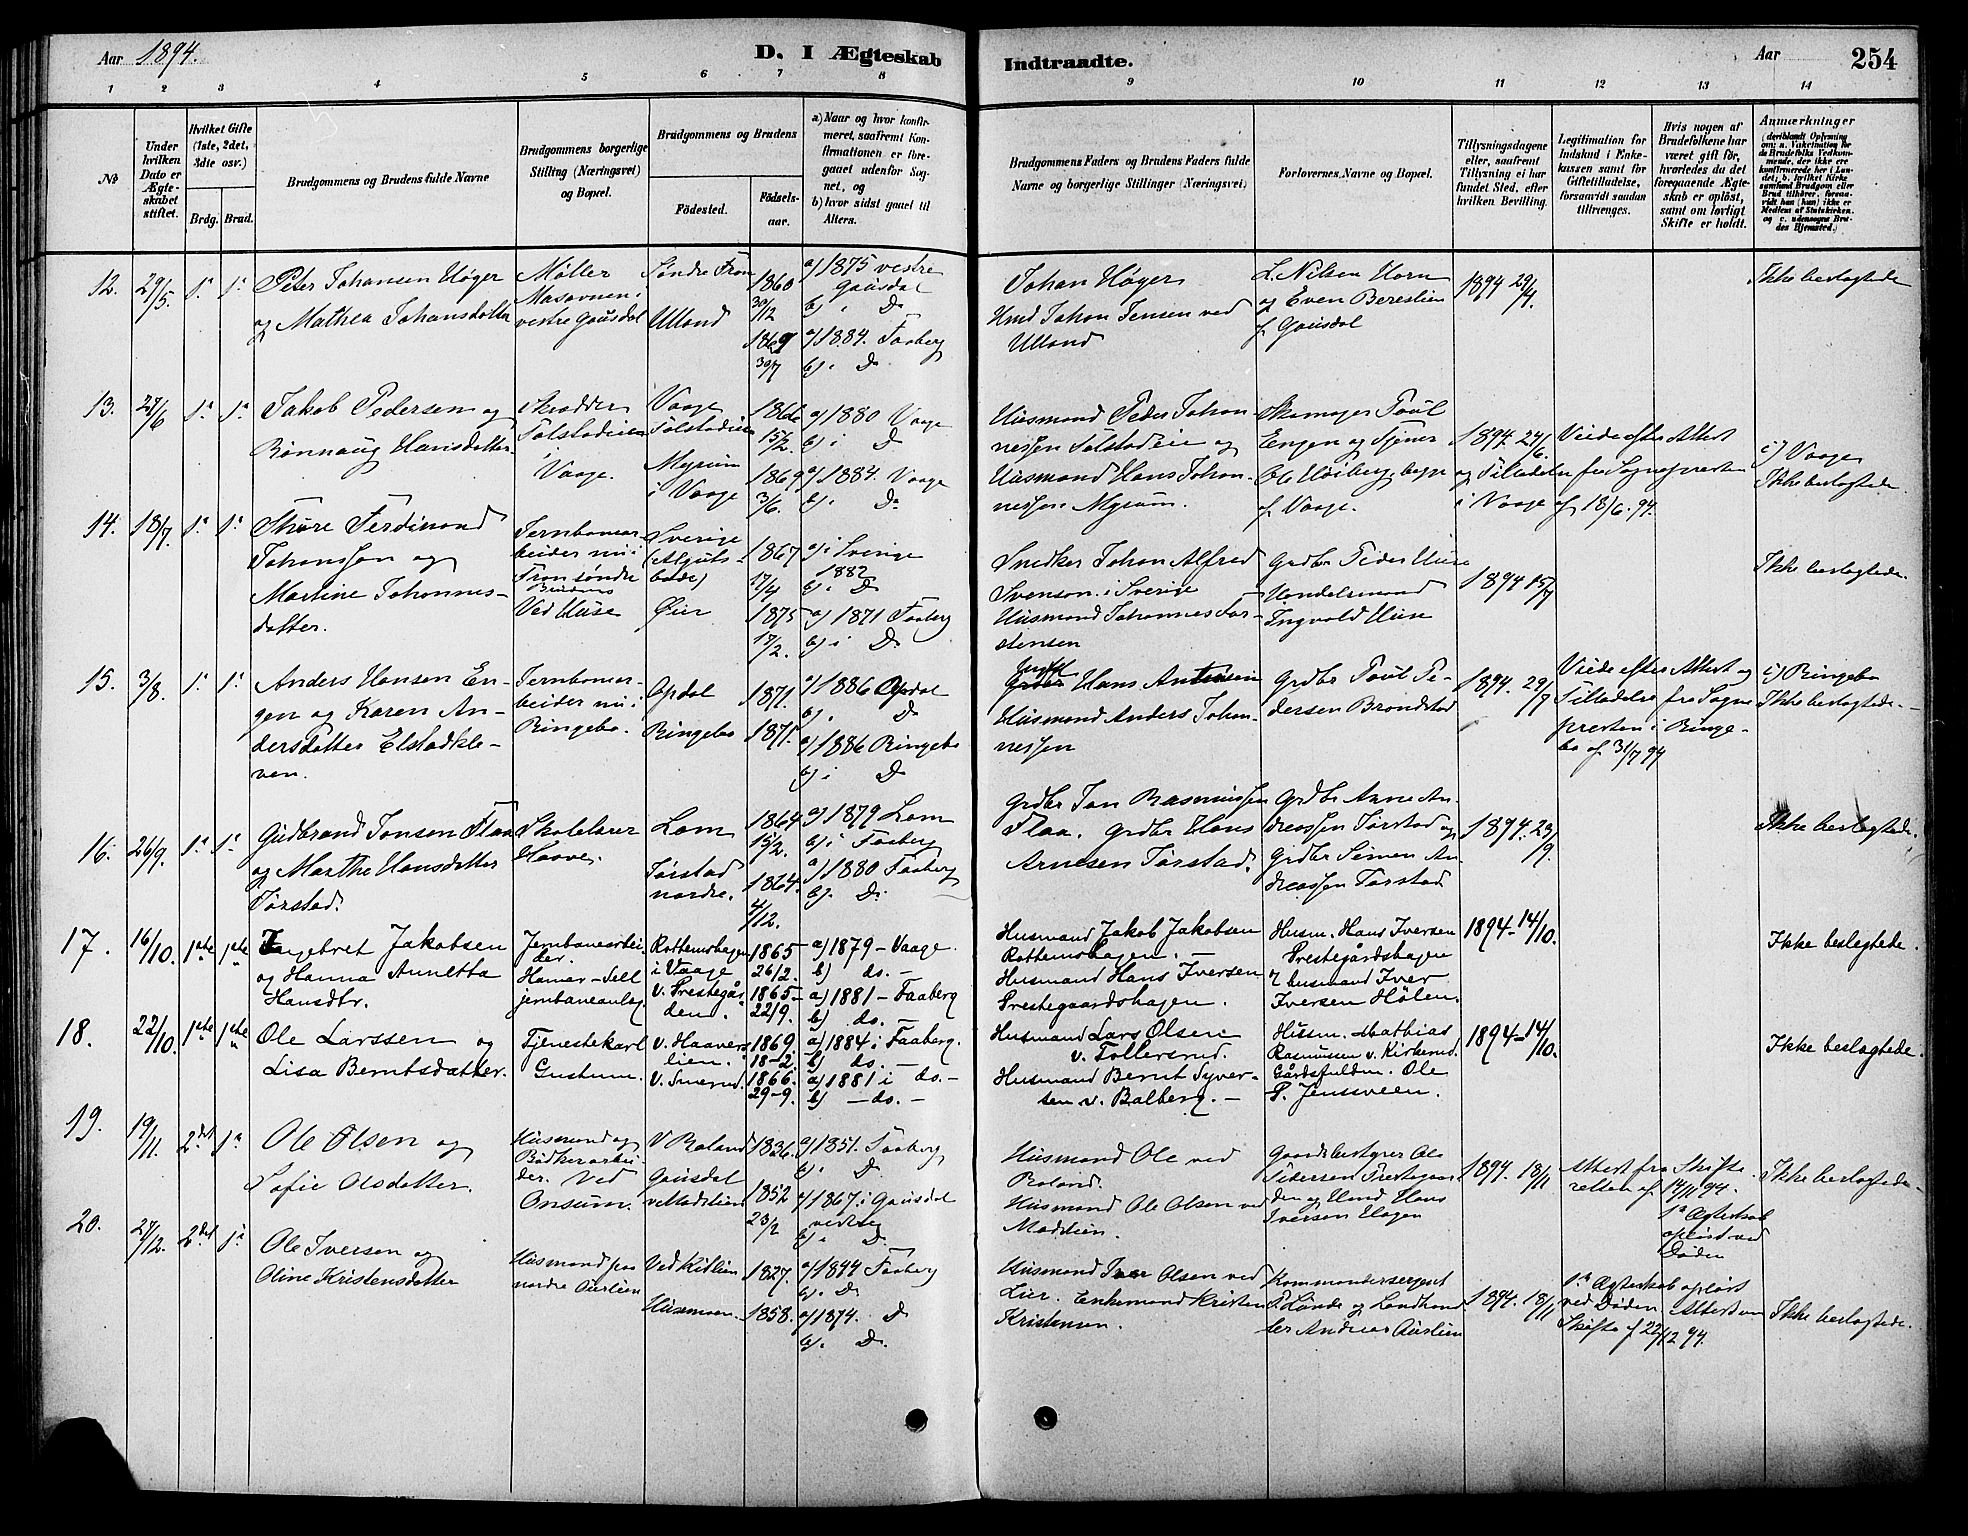 Aar 1894.
D. I Ægteskab
Indtraadte.
Aar
254
1 2 3 4 5 6 7 8 9 10 11 12 13 14
No
Under hvilken Dato er Ægteskabet stiftet.
Hvilket Gifte (1ste, 2det, 3dte osv.)
Brdg. Brud.
Brudgommens og Brudens fulde Navne
Brudgommens borgerlige Stilling (Næringsvei) og Bopæl.
Brudgommens og Brudens
Fødested.
Fødselsaar.
a) Naar og hvor konfirmeret, saafremt Konfirmationen er foregaaet udenfor Sognet, og
b) hvor sidst gaaet til Alters.
Brudgommens Faders og Brudens Faders fulde Navne og borgerlige Stillinger (Næringsvei)
Forlovernes Navne og Bopæl.
Tillysningsdagene eller, saafremt Tillysning ei har fundet Sted, efter hvilken Bevilling.
Legitimation for Indskud i Enkekassen samt for Giftetilladelse, forsaavidt saadan tiltrænges.
Hvis nogen af Brudefolkene har været gift før, hvorledes da det foregaaende Ægteskab er opløst, samt om lovligt Skifte er holdt.
Anmærkninger (deriblandt Oplysning om: a. Vakcination for de Brudefolks Vedkommende, der ikke ere konfirmerede her i Landet; b. hvilket Kirkesamfund Brudgom eller Brud tilhører, forsaavidt han (hun) ikke er Medlem af Statskirken, og c. udensogns Brudes Hjemsted.)
12. 29/5. 1. 1.
Peter Johansen Høyer
og Mathea Johansdatter
Møller
Masovnen i
vestre Gausdal
Søndre Fron
Ulland
1860
30/12
1869
30/7
a) 1875 vestre
Gausdal
b) " Do
a) 1884. Faaberg
b) " Do
Johan Høyer
Hmd Johan Jensen ved
Ulland
L. Nilsen Horn
og Even Berestien
af Gausdal
1894 29/4.
Ikke beslægtede
13. 27/6 1. 1.
Jakob Pedersen og
Rønnaug Hansdatter
Skrædder
Tolstadeien
i Vaage.
Vaage
Tolstadeien
Myrum
i Vaage
1866
15/2.
1869
3/6.
a) 1880 Vaage
b) i Do
a) 1884. Vaage
b) Do
Husmand Peder Johannessen Tolstadeie og
Husmand Hans Johannessen Myrum.
Skomager Poul
Engen og Tjener
Ole Høiberg begge
af Vaage.
1894. 24/6.
Viede efter Attest
og Tilladelse fra Sognepresten
i Vaage af 18/6. 94.
c) Vaage
Ikke beslægtede.
14. 18/7. 1. 1.
Thure Ferdinand
Johansson og
Martine Johannesdatter.
Jernbanearbeider nu i
Fron søndre
Brudens
Ved Huse
Sverige
(Algutsboda)
Øier
1867
17/4
1875
17/2.
a) i Sverige
1882
b). Do
a) 1871 Faaberg
b) i Do
Snedker Johan Alfred
Svenson i Sverige
Husmand Johannes Torstensen
Grdbr Peder Huse
Handelsmand
Ingvald Huse
1894 15/7
Ikke beslægtede.
15. 3/8. 1. 1.
Anders Hansen Engen og Karen Andersdatter Elstadkleven.
Jernbanearbeider nu i
Ringebo.
Opdal
Ringebo
1871.
1871.
a) 1886 Opdal
b). Do
a) 1886 Ringebo
b) i Do
Hans Antonsen
Husmand Anders Johannessen
Grdbr Poul Pedersen Brondstad
1894. 29/7
Viede efter Attest og
Tilladelse fra Sognepresten i Ringebo af 31/7 94
c) Ringebo
Ikke beslægtede.
16. 26/9. 1. 1.
Gudbrand Jonsen Flaa
og Marthe Hansdatter
Jørstad.
Skolelærer
Haave.
Lom
Jørstad
nordre.
1864
15/2.
1864.
4/12.
a) 1879 Lom
b) i Faaberg
a) 1880 Faaberg
b). Do.
Grdbr Jan Rasmussen
Flaa. Grdbr Hans
Arnesen Jørstad.
Grdbr Arne Andreassen Jørstad og
Grdbr Simen Andreassen Jørstad
1894. 23/9.
Ikke beslægtede.
17. 16/10. 1ste 1ste
Ingebret Jakobsen
og Hanna Annetta
Hansdtr.
Jernbanearbeider.
Hamar-Sell
jernbaneanlæg
Rottemshagen
i Vaage
v. Prestegården.
1865
26/2.
1865
22/9.
a) 1879 - Vaage.
b) do. -
a) 1881 - Faaberg
b) do. -
Husmand Jakob Jakobsen
Rottemshagen. -
Husmand Hans Iversen
Prestegaardshagen.
Husm. Hans Iversen
Prestegårdshagen
& husmand Iver
Iversen Hølen.
1894 - 14/10.
Ikke beslegtede.
18. 22/10. 1ste 1ste
Ole Larssen og
Lisa Berntsdatter.
Tjenestekarl
Gustum.
v. Haaverslien.
v. Smerud.
1869.
18-2.
1866.
29-9.
a) 1884 i Faaberg.
b) do. -
a) 1881 i do. -
b) - do. -
Husmand Lars Olsen
v. Tollersrud.
Husmand Bernt Syversen v. Balberg. -
Husm. Mathias
Rasmusen v. Kirkerud.
Gårdsfuldm. Ole
P. Jensveen.
1894 - 14/10.
Ikke beslegtede.
19. 19/11. 2det 1.
Ole Olsen og
Sofie Olsdatter.
Husmand og
Bødkerarbeider. Ved
Onsum.
V Roland
Gausdal
v Madslien
1836.
1852
23/2
a) 1851. Faaberg
b). Do
a) 1867 i Gausdal
vestre
b) i Do.
Husmand Ole ved
Roland.
Husmand Ole Olsen ved
Madslien.
Gaardsbestyrer Ole
Pedersen Prestegaarden og Hmd Hans
Iversen Hagen
1894. 18/11
Attest fra Skifteretten af 14/11 94.
1ste Ægteskab
opløst ved
Døden
Ikke beslægtede.
20. 27/12. 2det 1.
Ole Iversen og
Oline Kristensdatter
Husmand paa
nordre Aurlien
Ved Kidlien
Husmoen.
1827.
1858.
a) 1844 Faaberg
b). Do
a) 1874. Do
b). Do.
Husmand Iver Olsen ved
Lier. Enkemand Kristen
Kristensen.
Kommandersergent
P. Lønde og Landhandler Andreas Aurlien
1894. 18/11
1ste Ægteskab opløst
ved Døden. Attest om
Skifte af 22/12 94.
Ikke beslægtede.